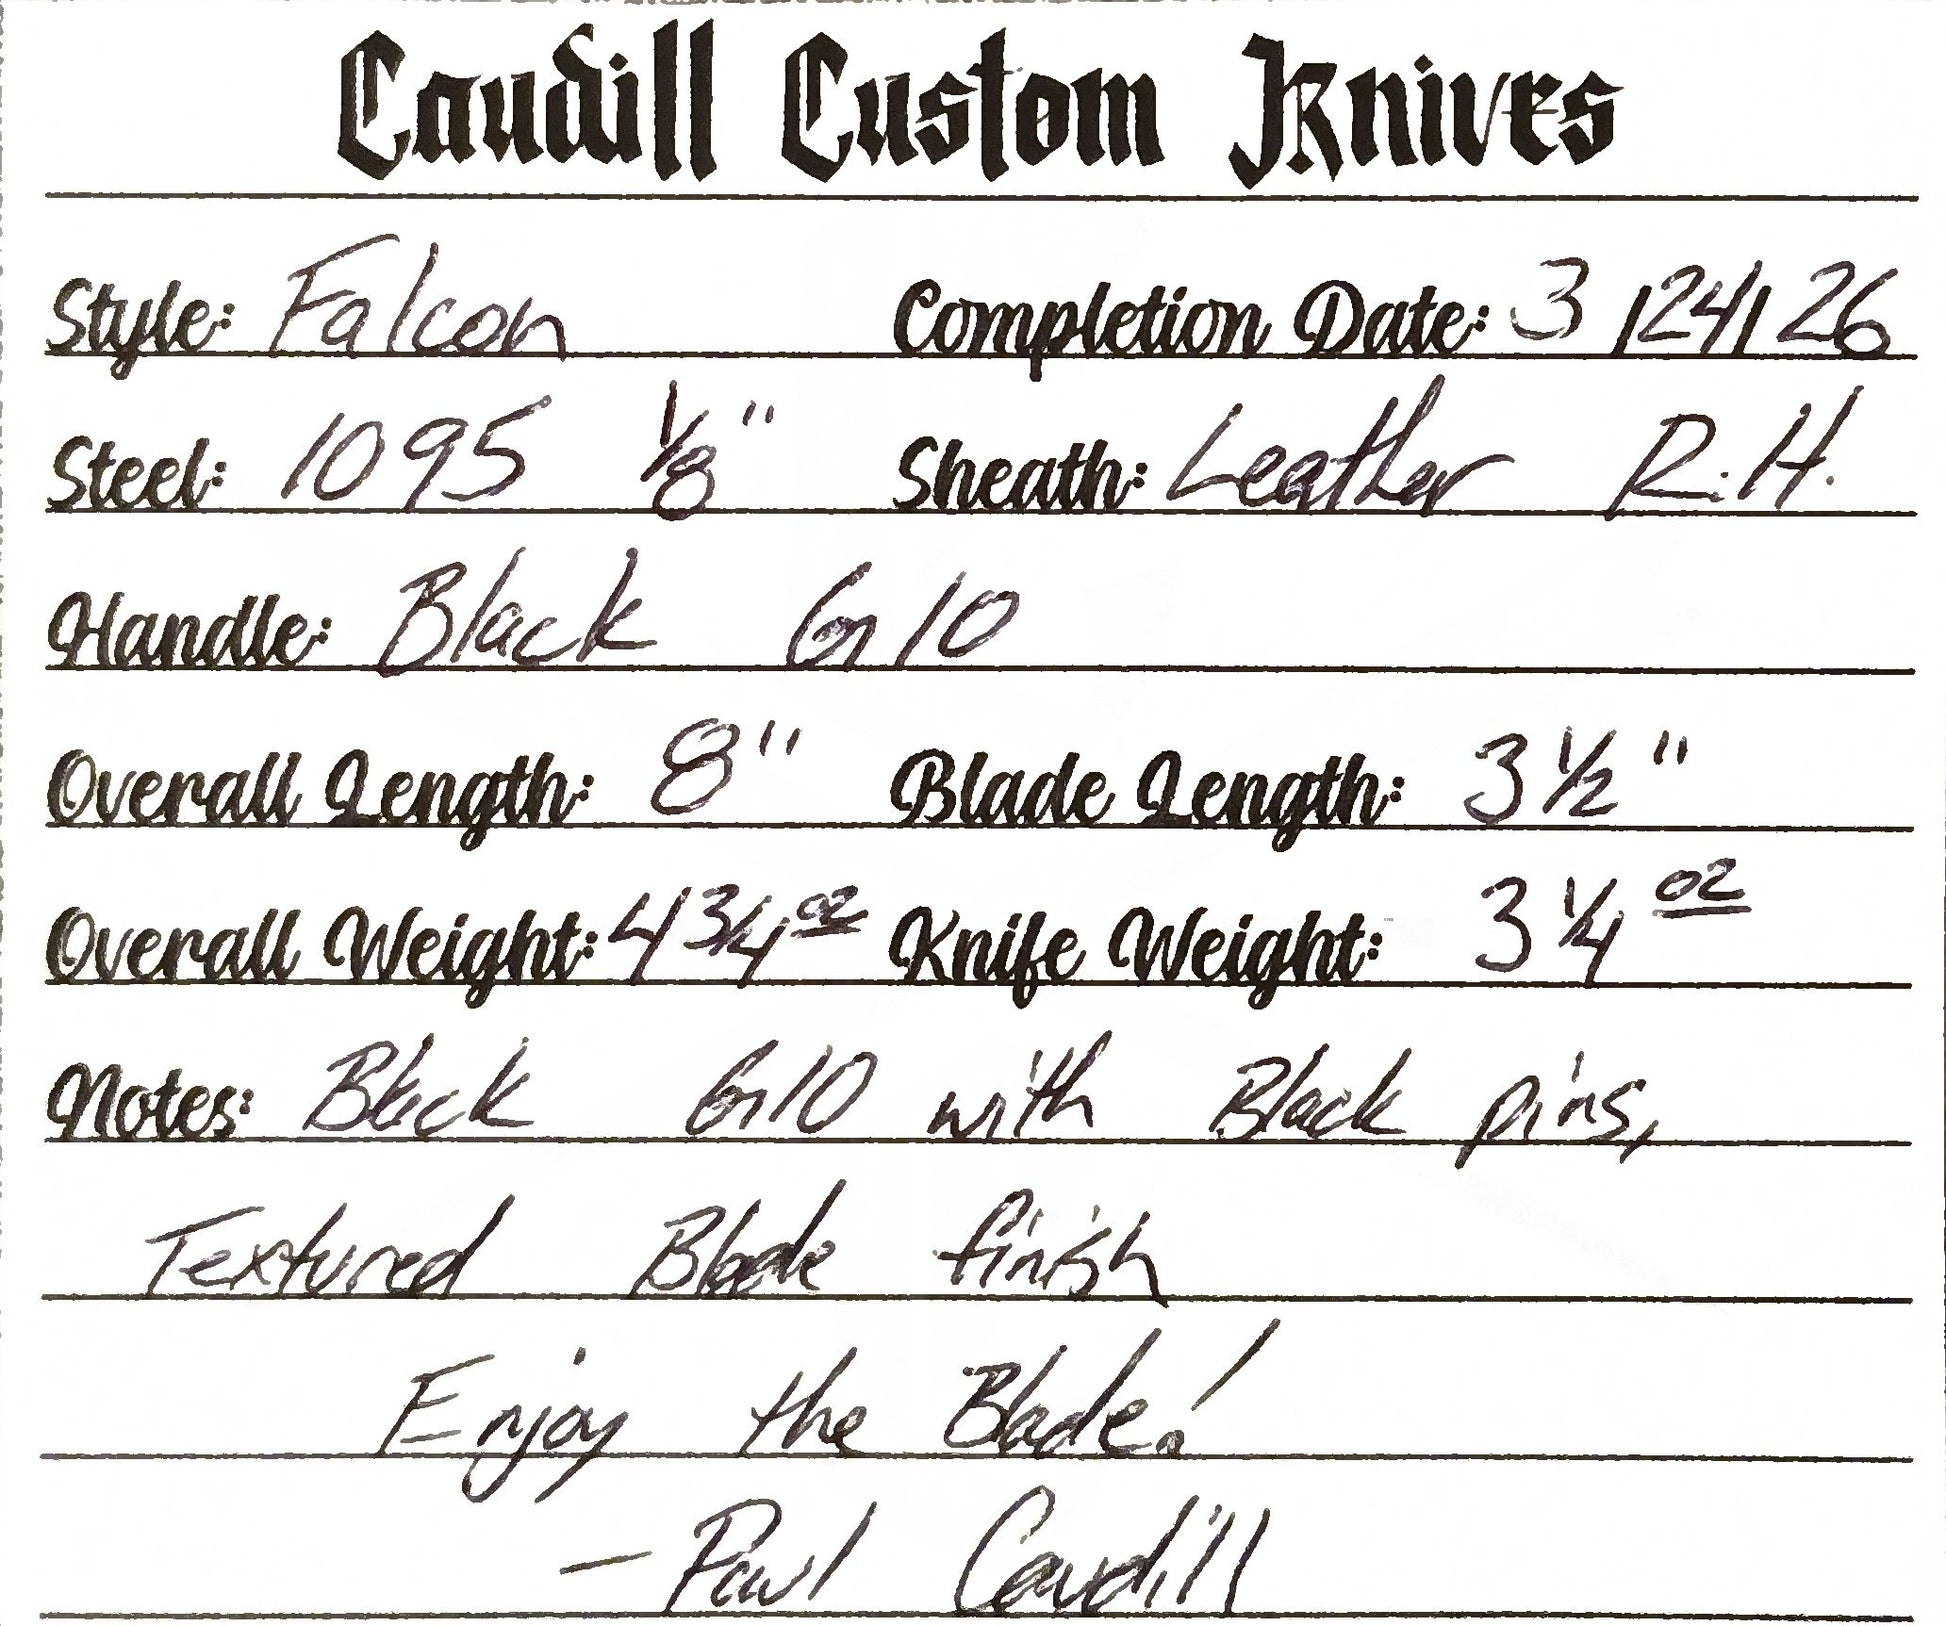 Caudill Custom Knives
Style: Falcon Completion Date: 3/24/26
Steel: 1095 1/8" Sheath: Leather R.H.
Handle: Black G10
Overall Length: 8" Blade Length: 3 1/2"
Overall Weight: 4 3/4 oz Knife Weight: 3 1/4 oz
Notes: Black G10 with Black pins,
Textured Blade finish
Enjoy the Blade!
- Paul Caudill